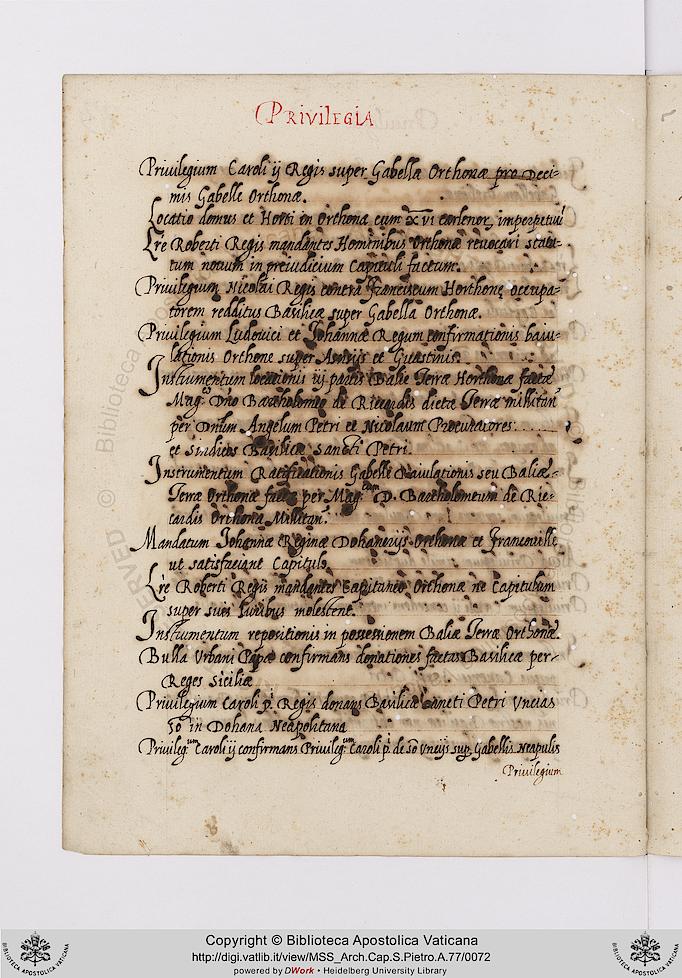 PRIVILEGIA
Priuilegium Caroli ij Regis super Gabella Orthonæ pro Deci-
mis Gabelle Orthonæ.
Locatio domus et Horti in Orthona cum XVI carlenor, imperpetuū
Lr̄e Roberti Regis mandantes Hominibus Orthonæ reuocari statu-
tum nouum in preiudicium Capituli factum.
Priuilegium Nicolai Regis contra Franciscum Horthonę occupa-
torem redditus Basilicæ super Gabella Orthonæ.
Priuilegium Ludouici et Johannæ Regum confirmationis baiu-
lationis Orthone super et Guastinis.
Instrumentum locationis iij partis Balie Terræ Horthonæ factæ
Mag.co Dño Bartholomeo de Riccardis dictæ Terræ militan
per Dnum Angelum Petri et Nicolaum Procuratores
et Sindicos Basilicæ Sancti Petri.
Instrumentum Ratificationis Gabelle Baiulationis seu Baliæ
Terræ Orthonæ factæ per Mag.cum D. Bartholomeum de Ric-
cardis Orthona Militan.
Mandatum Johannæ Reginæ Dohanerijs Orthonæ et Francauille
ut satisfaciant Capitulo
Lr̄e Roberti Regis mandantes Capitaneo Orthonæ ne Capitulum
super suis Iuribus molestent.
Instrumentum repositionis in possessionem Baliæ Terræ Orthonæ.
Bulla Urbani Papæ confirmans donationes factas Basilicæ per
Reges Siciliæ
Priuilegium Caroli p.i Regis donans Basilicæ Sancti Petri Vncias
50 in Dohana Neapolitana
Priuileg.um Caroli ij confirmans Priuileg.um Caroli p.i de 50 Vncijs sup. Gabellis Neapolis
Priuilegium
Copyright © Biblioteca Apostolica Vaticana
http://digi.vatlib.it/view/MSS_Arch.Cap.S.Pietro.A.77/0072
powered by DWork • Heidelberg University Library